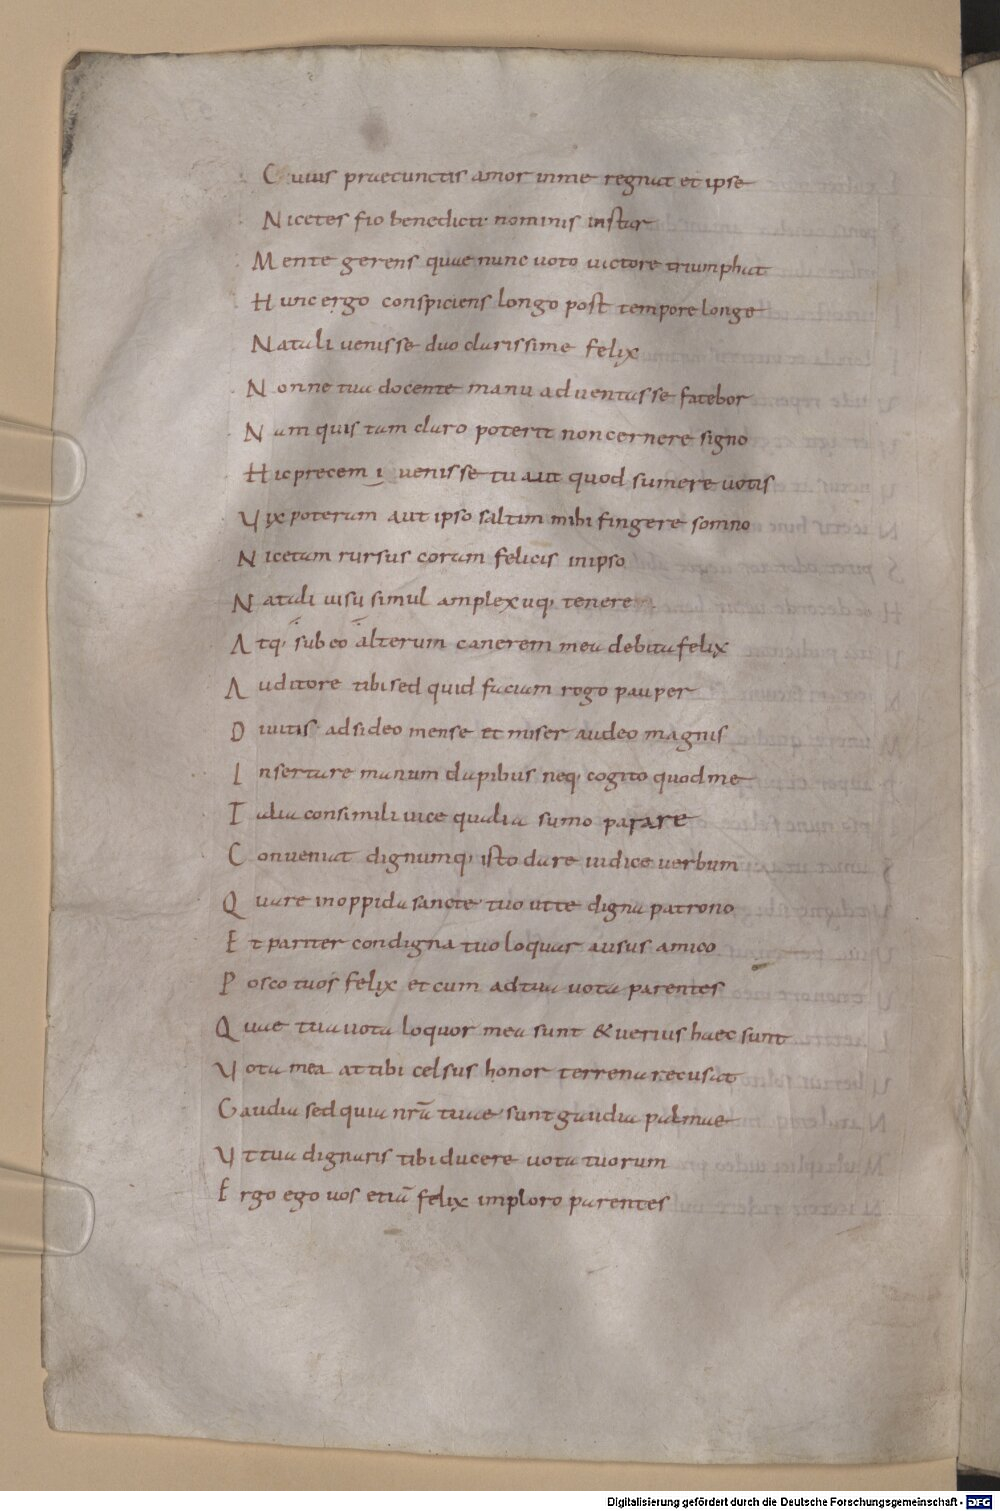 Cuius prae cunctis amor in me regnat et ipse
Nicetes fio benedicti nominis instar
Mente gerens quae nunc uoto uictore triumphat
Hunc ergo conspiciens longo post tempore longe
Natali uenisse duo clarissime felix
Nonne tua docente manu aduentasse fatebor
Nam quis tam claro poterit non cernere signo
Hic precem i uenisse tu aut quod sumere uotis
Vix poteram aut ipso saltim mihi fingere somno
Nicetam rursus coram felicis in ipso
Natali uisu simul amplexuq; tenere
Atq; sub eo alterum canerem mea debita felix
Auditore tibi sed quid faciam rogo pauper
Diuitis adsideo mense et miser audeo magnis
Insertare manum dapibus neq; cogito quod me
Talia consimili uice qualia sumo parare
Conueniat dignumq; isto dare iudice uerbum
Quare in oppida sancte tuo ut te digna patrono
Et pariter condigna tuo loquar ausus amico
Posco tuos felix et cum ad tua uota parentes
Quae tua uota loquor mea sunt & uerius haec sunt
Vota mea at tibi celsus honor terrena recusat
Gaudia sed quia nrā tuae sunt gaudia palmae
Vt tua dignaris tibi ducere uota tuorum
Ergo ego uos etiā felix imploro parentes
Digitalisierung gefördert durch die Deutsche Forschungsgemeinschaft - DFG